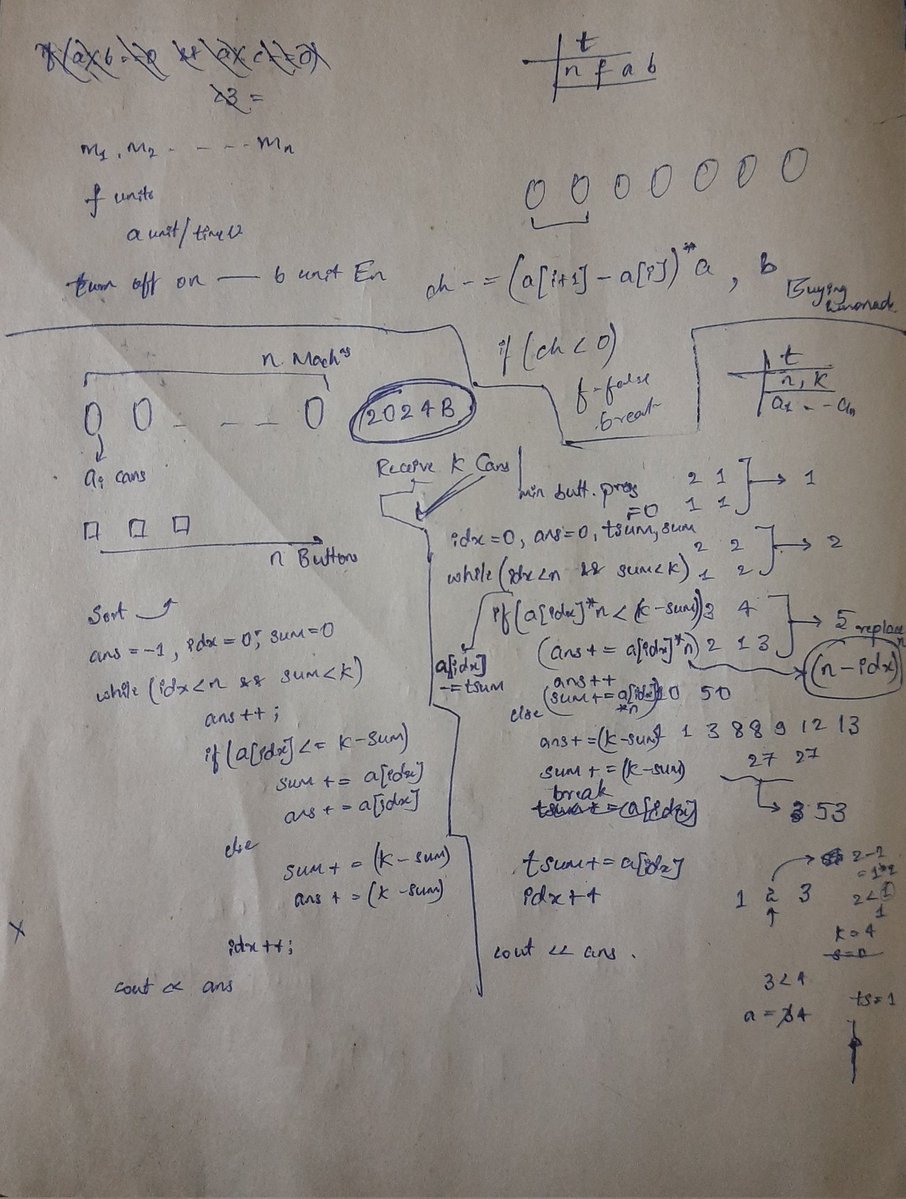 t
n f a b
m1, m2 - - - - - mn
f units
a unit/time
turn off on — b unit En
ch -= (a[i+1] - a[i])*a , b
if (ch < 0)
f-false
break
Buying
t
n, k
a1 - - an
n Machs
0 0 - - - - 0
ai cans
n Buttons
2024B
Receive k Cans
Sort
ans = -1, idx = 0; sum=0
while (idx<n && sum<k)
ans++;
if (a[idx] <= k-sum)
sum += a[idx]
ans += a[idx]
else
sum += (k-sum)
ans += (k-sum)
idx++;
cout << ans
X
min butt. press
=0
idx=0, ans=0, tsum, sum
while (idx<n && sum<k)
if (a[idx]*n < (k-sum))
a[idx]
-= tsum
(ans += a[idx]*n)
ans++
(sum += a[idx]
*n
else
ans += (k-sum)
sum += (k-sum)
break
tsum += (a[idx])
tsum += a[idx]
idx++
cout << ans .
2 1
1 1
1
2 2
1 2
2
3 4
2 1 3
5
replace
(n-idx)
10 50
1 3 8 8 9 12 13
27 27
53
1 2 3
2-1
k=4
3<4
ts=1